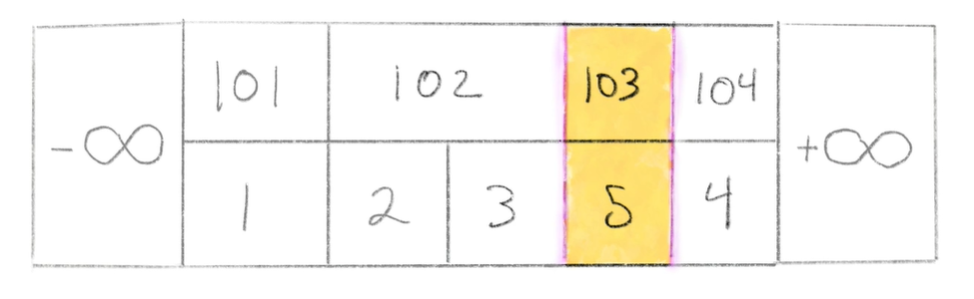 101 102 103 104
-∞ +∞
1 2 3 5 4